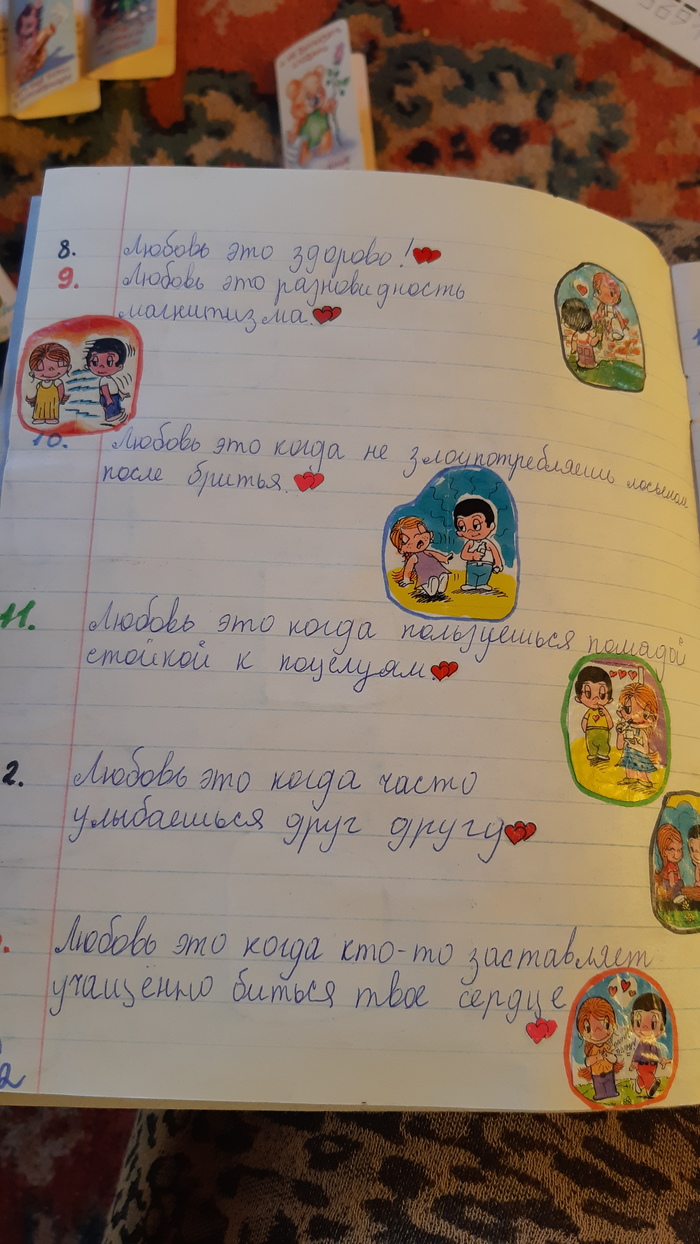 8. Любовь это здорово!
9. Любовь это разновидность
магнитизма.
10. Любовь это когда не злоупотребляешь лосьеном
после бритья.
11. Любовь это когда пользуешься помадой
стойкой к поцелуям.
2. Любовь это когда часто
улыбаешься друг другу
Любовь это когда кто-то заставляет
учащённо биться твое сердце
2